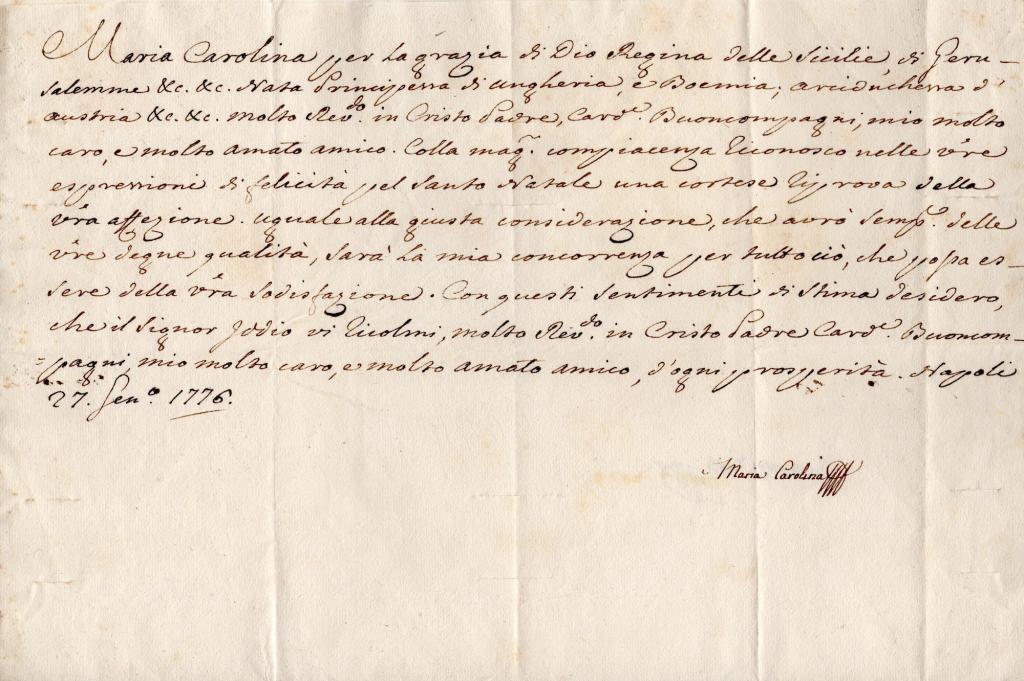 Maria Carolina per la grazia di Dio Regina delle Sicilie, di Geru-
salemme &c. &c. Nata Principessa di ungheria, e Boemia; arciduchessa d'
austria &c. &c. molto Rev.do in Cristo Padre, Card.e Buoncompagni, mio molto
caro, e molto amato amico. Colla mag.r compiacenza riconosco nelle vr̃e
espressioni di felicità pel Santo Natale una cortese riprova della
vr̃a affezione. uguale alla giusta considerazione, che avrò semp.e delle
vr̃e degne qualità, sarà la mia concorrenza per tutto ciò, che possa es-
sere della vr̃a sodisfazione. Con questi sentimenti di stima desidero,
che il Signor Iddio vi ricolmi, molto Rev.do in Cristo Padre Card.e Buoncom-
=pagni, mio molto caro, e molto amato amico, d'ogni prosperità. Napoli
27. Gen.o 1776.
Maria Carolina